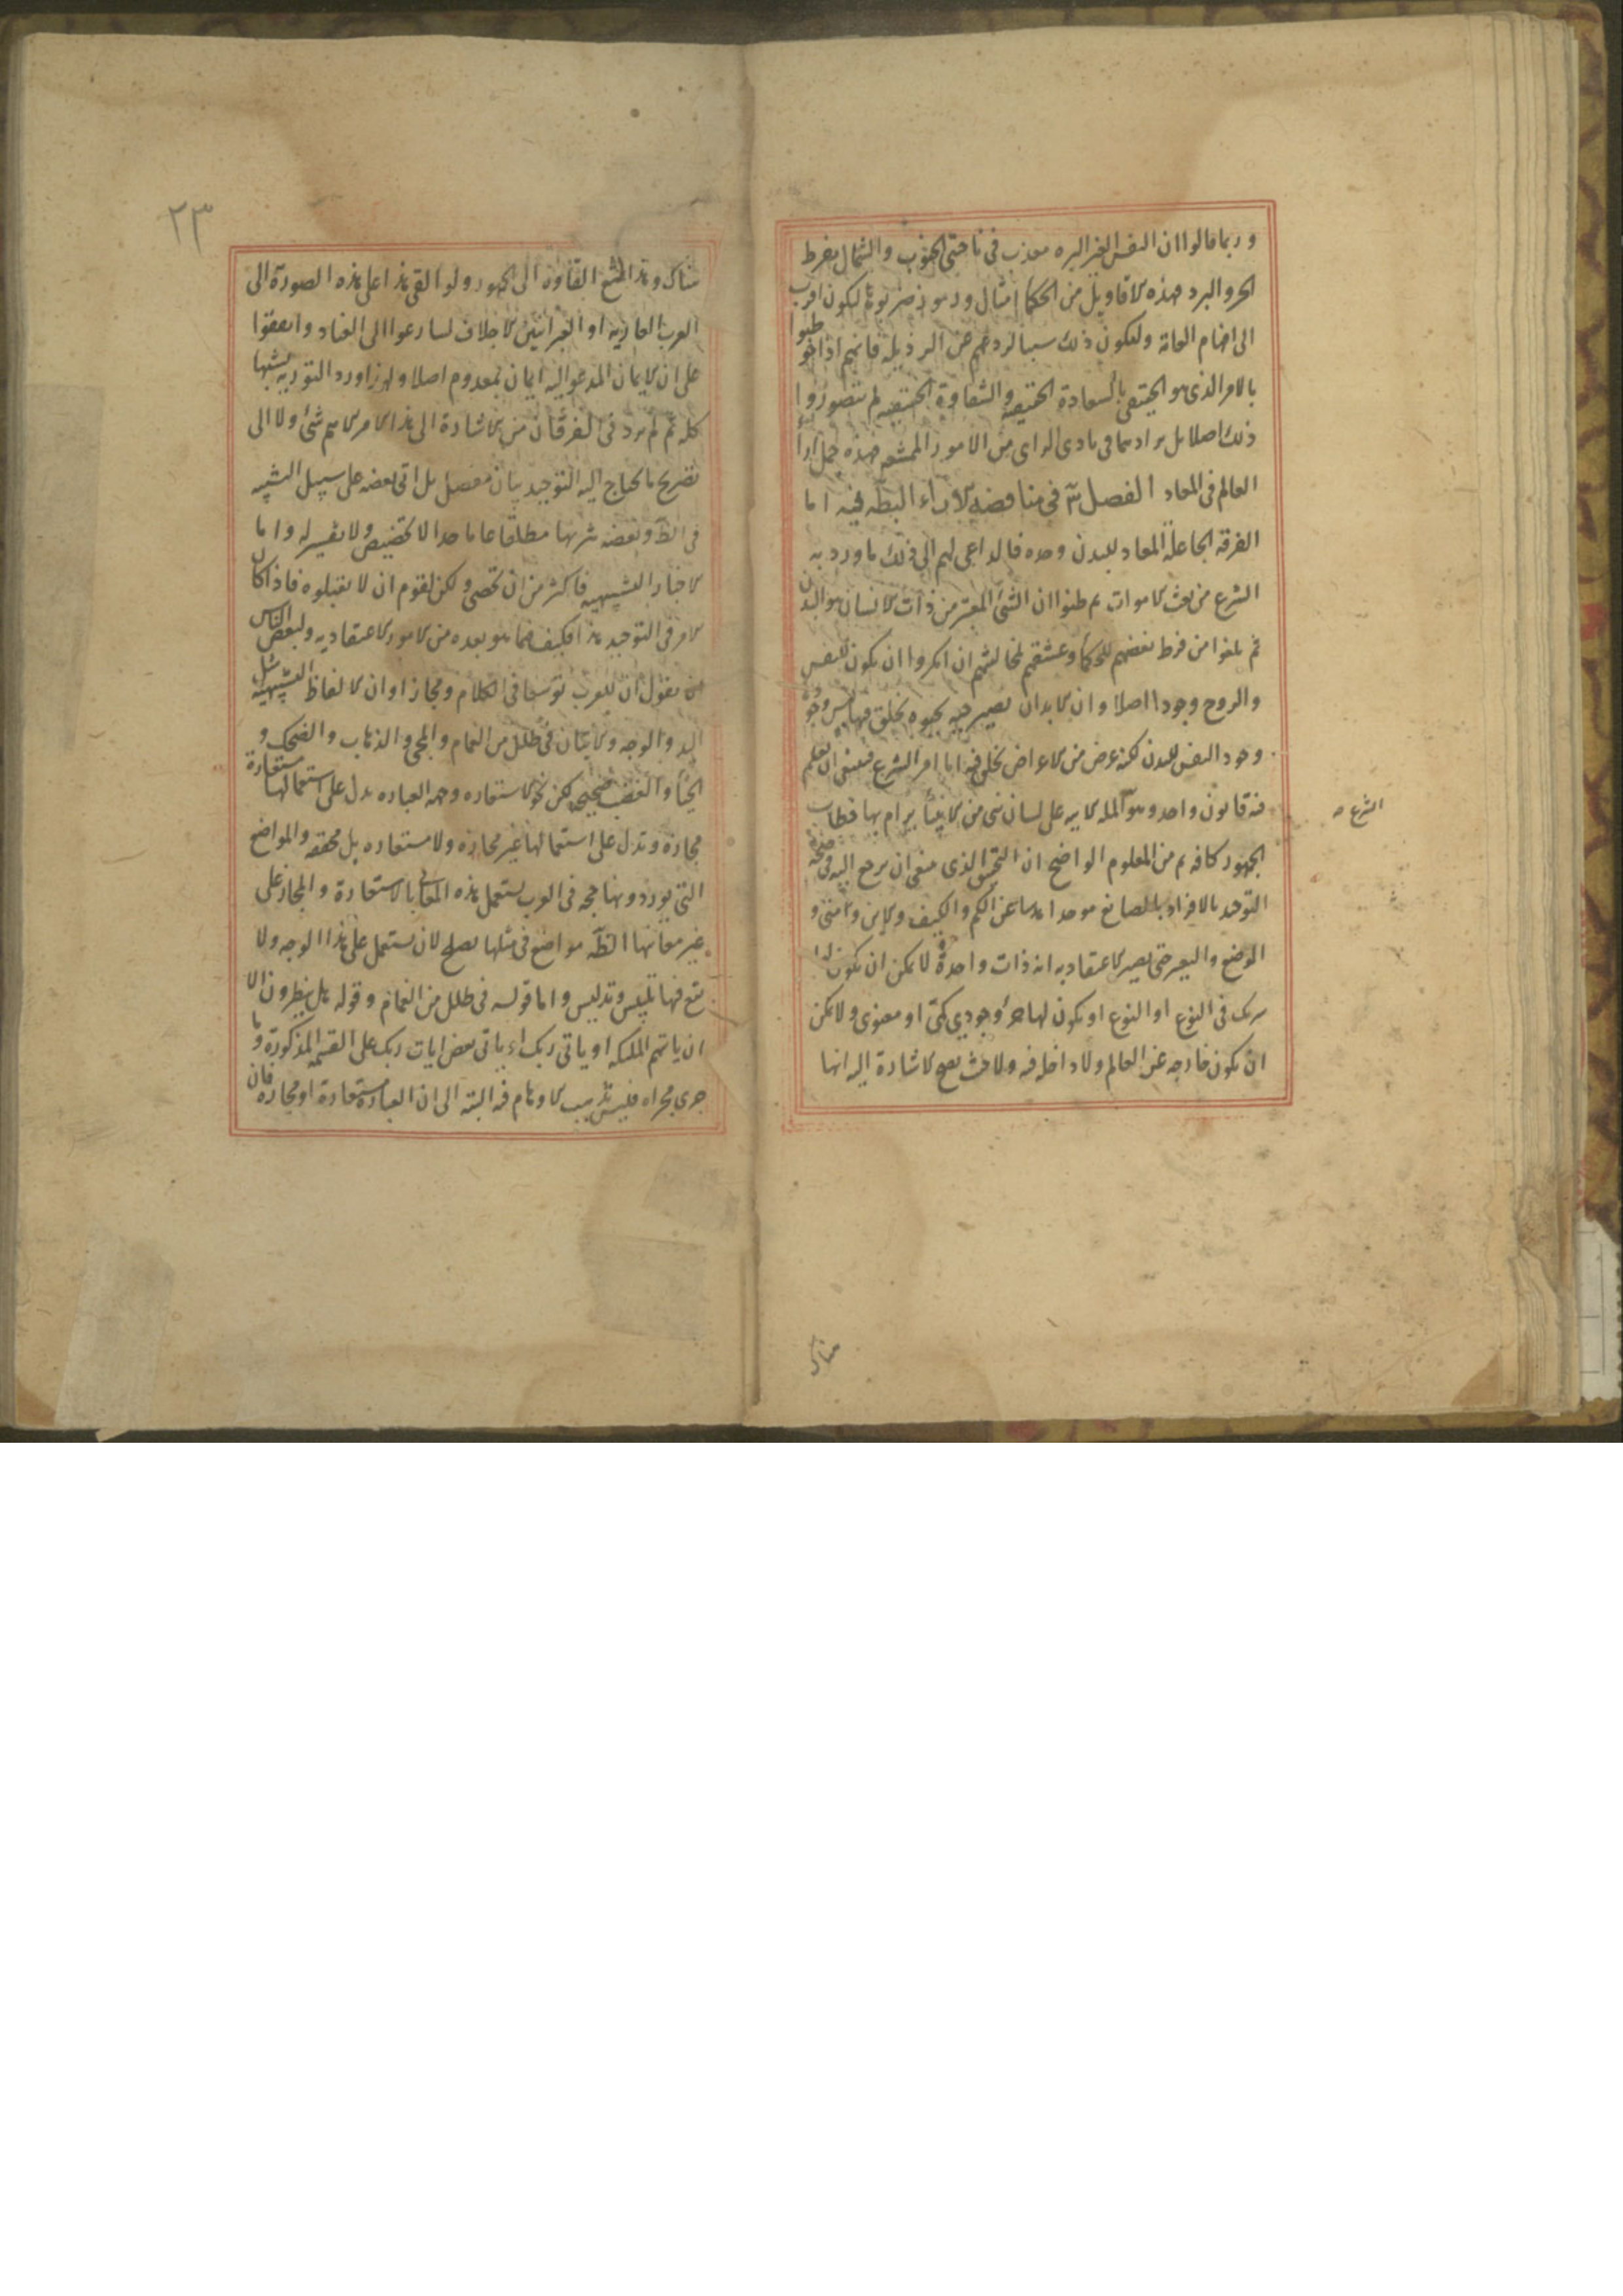 وربما قالوا ان النفس الغير البره معذب فى ناحيتى الجنوب والشمال بفرط
الحر والبرد فهذه الاقاويل من الحكما امثال ورموز ضربوها ليكون اقرب
الى افهام العامة وليكون ذلك سببا لردعهم عن الرذيله فانهم اذا خوطبوا
بالامر الذى هو الحقيقى بالسعادة الحقيقيه والشقاوة الحقيقيه لم يتصوروا
ذلك اصلا بل فى بادى الراى من الامور الممتنعه فهذه جمل اراء
العالم فى المعاد الفصل فى مناقضه الاراء الباطله فيه اما
الفرقه الجاعلة المعاد للبدن وحده فالداعى لهم الى ذلك ما ورد به
الشرع من بعث الاموات ثم ظنوا ان الشئ المعتبر من ذات الانسان هو البدن
ثم بلغوا من فرط بغضهم للحكماء وعشقهم لمخالفتهم ان انكروا ان يكون للنفس
والروح وجودا اصلا وان الابدان تصير حيه بحيوه تخلق فيها ليس وجوده
وجود النفس للبدن لكنه عرض من الاعراض تخلق فيه اما امر الشرع فينبغى ان يعلم
فيه قانون واحد وهو ان المله الاتيه على لسان نبى من الانبياء يرام بها خطاب
الجمهور كافه ثم من المعلوم الواضح ان التحقيق الذى ينبغى ان يرجع اليه فى صحة
التوحيد بالاقرار بالصانع موحدا مقدسا عن الكم والكيف والاين والمتى و
الوضع والتغير حتى يصير الاعتقاد به انه ذات واحدة لا يمكن ان يكون لها
شريك فى النوع او يكون لها جزء وجودي كمّى او معنوى ولا يمكن
ان يكون خارجه عن العالم ولا داخله فيه ولا حيث يصح الاشارة اليه انها
الشرع
هناك
٢٣
هناك وهذا ممتنع القاؤه الى الجمهور ولو القى هذا على هذه الصورة الى
العرب العاربه او العبرانيين الاجلاف لسارعوا الى العناد واتفقوا
على ان الايمان المدعو اليه ايمان بمعدوم اصلا ولهذا ورد التوريه تشبيها
كله ثم لم يرد فى الفرقان من الاشارة الى هذا الامر الاهم شئ ولا الى
تصريح ما يحتاج اليه التوحيد بيان مفصل بل اتى بعضه على سبيل التشبيه
فى الظ وبعضه تنزيها مطلقا عاما جدا لا تخصيص ولا تفسير له واما
الاخبار التشبيهيه فاكثر من ان تحصى ولكن لقوم ان لا يقبلوه فاذا كان
الامر فى التوحيد هذا فكيف فيما هو بعده من الامور الاعتقاديه ولبعض الناس
ان يقول ان للعرب توسعا فى الكلام ومجازا وان الالفاظ التشبيهية مثل
اليد والوجه والاتيان فى ظلل من الغمام والمجئ والذهاب والضحك و
الحياء والغضب صحيحه لكن نحو الاستعاره وجهه العباره يدل على استعمالها مستعارة
مجازة وتدل على استعمالها غير مجازه ولا مستعاره بل محققه والمواضع
التى يوردونها حجه فى العرب يستعمل هذه المعانى بالاستعارة والمجاز على
غير معانيها الظه مواضع فى مثلها يصلح لان يستعمل على هذا الوجه ولا
يقع فيها تلبيس وتدليس واما قوله فى ظلل من الغمام وقوله هل ينظرون الا
ان ياتيهم الملئكه او ياتى ربك او ياتى بعض ايات ربك على القسمه المذكورة وما
جرى مجراه فليس تذهب الاوهام فيه البته الى ان العبارة مستعارة او مجازه فان